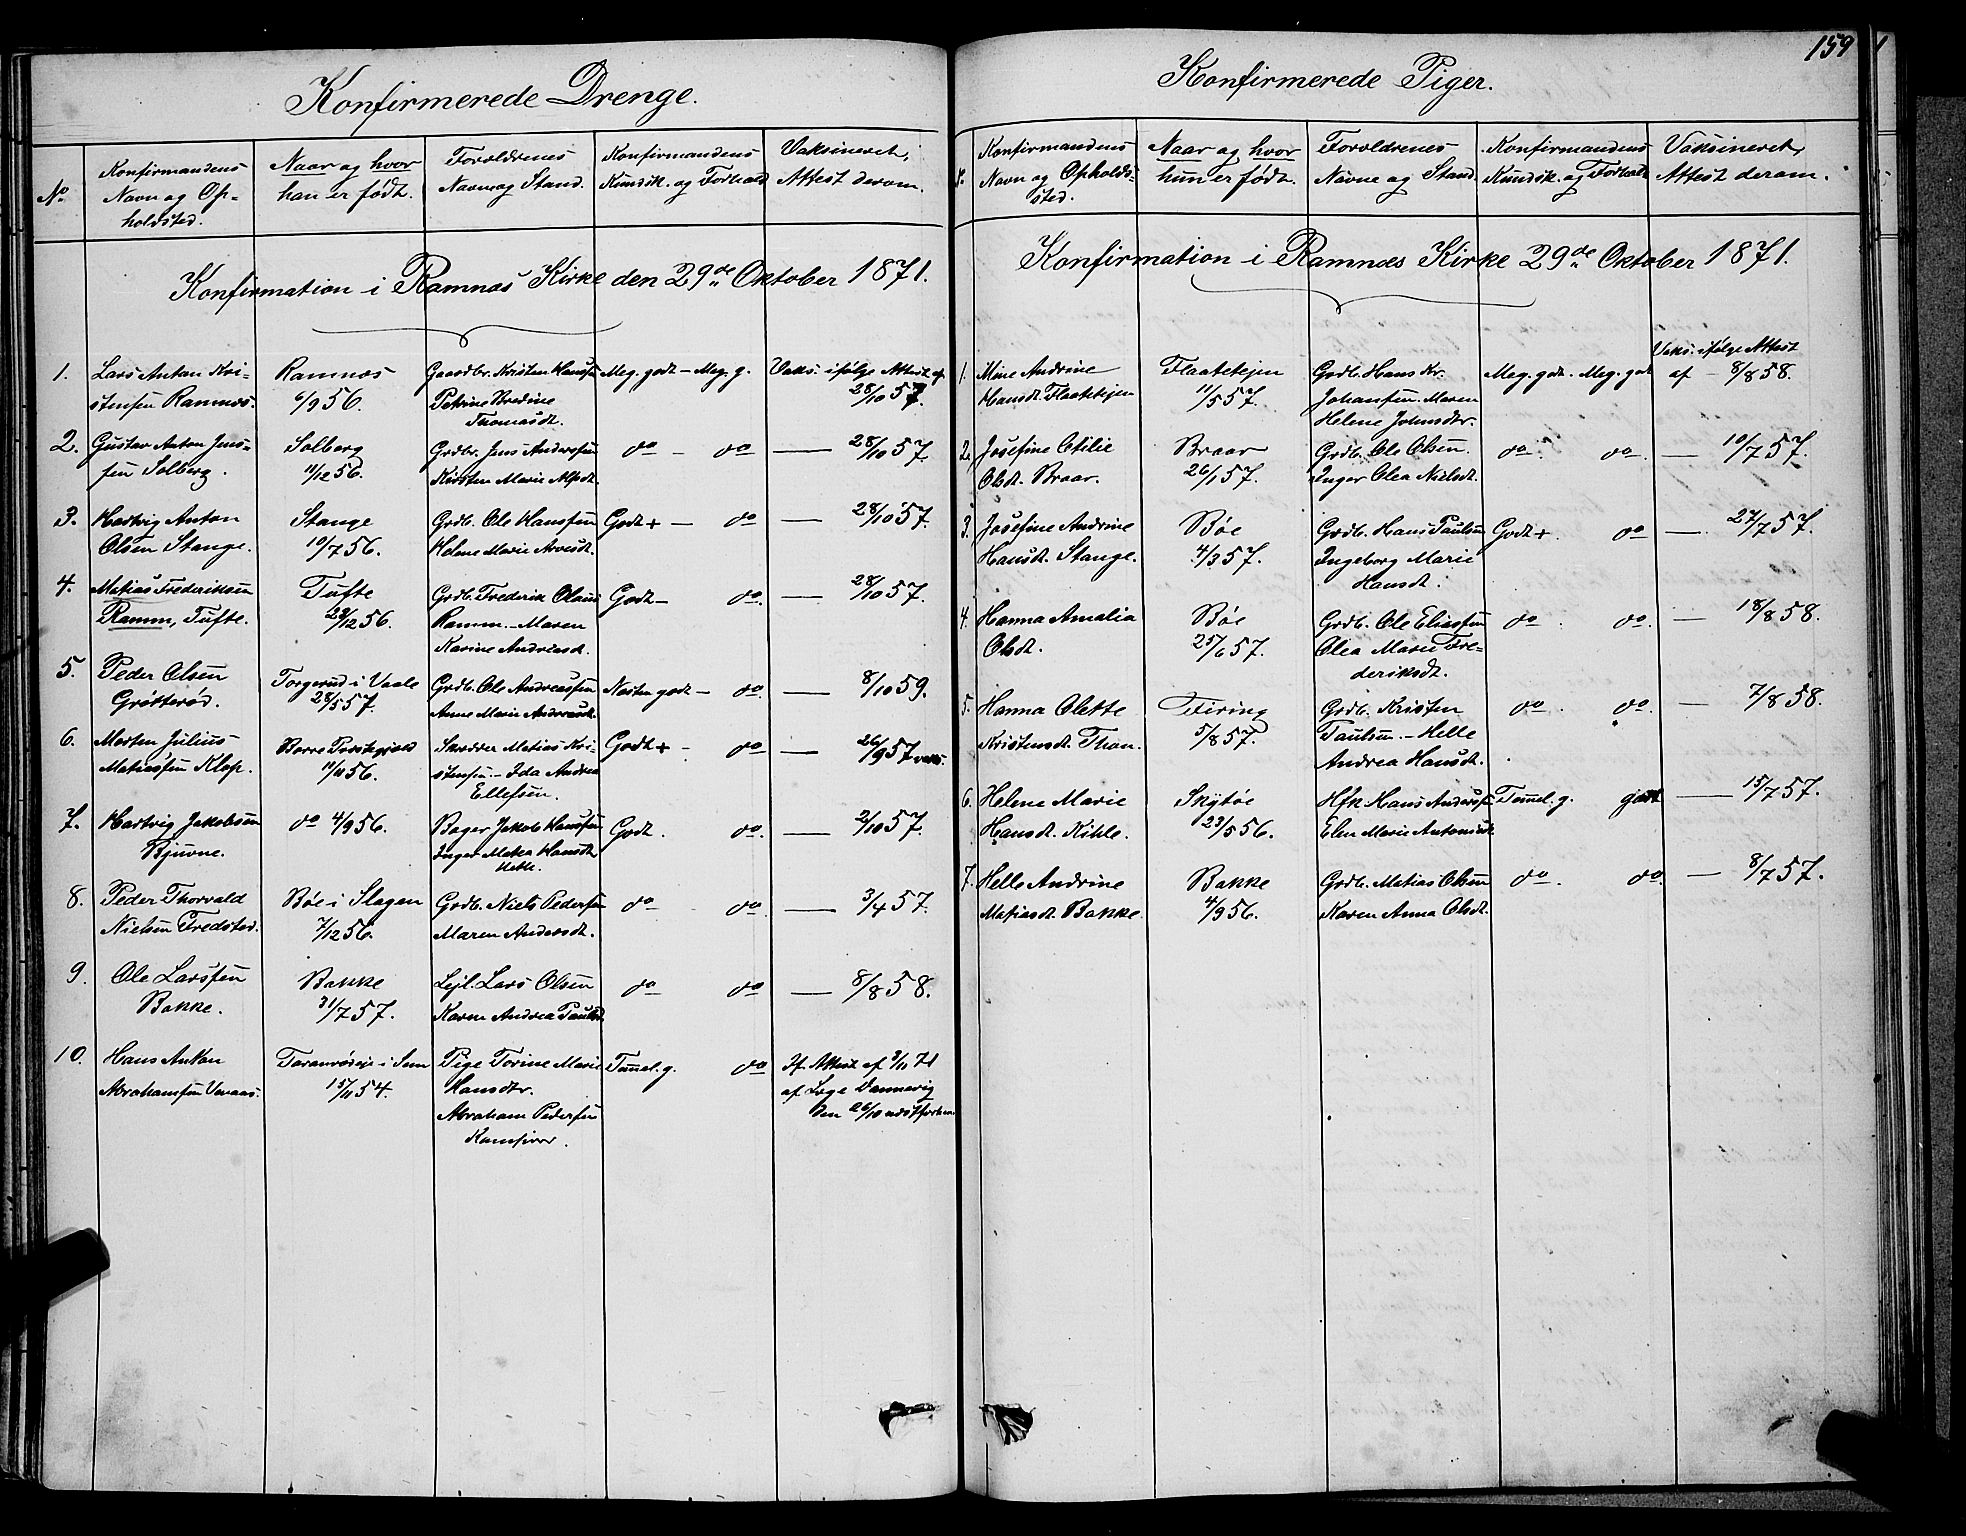 Konfirmerede Drenge.
No
Konfirmandens
Navn og Op-
holdsted.
Naar og hvor
han er född.
Forældrenes
Navne og Stand.
Konfirmandens
Kundsk. og Forhold
Vaksineret,
Attest derom.
Konfirmation i Ramnæs Kirke den 29de Oktober 1871.
1. Lars Anton Kri-
stensen Ramnæs.
Ramnæs
6/9 56.
Gaardbr. Kristen Hansen
Petrine Bredine
Thomasdt.
Meg. godt – Meg. g.
Vaks. ifölge Attest af
28/10 57.
2. Gustav Anton Jens-
sen Solberg.
Solberg
11/12 56.
Grdbr. Jens Anderssen
Kirsten Marie
do – do — 28/10 57.
3. Hartvig Anton
Olsen Stange.
Stange
10/7 56.
Grdb. Ole Hanssen
Helene Marie
Godt + – do — 28/10 57.
4. Matias Frederiksen
Ramm, Tufte.
Tufte
23/12 56.
Grdb. Frederik Olaus
Ramm. – Maren
Karine Andreasdt.
Godt – do. — 28/10 57.
5. Peder Olsen
Gröterød.
Torgerud i Vaale
28/5 57.
Grdb. Ole Andreassen
Anne Marie Andreasdt.
Næsten godt – do. — 8/10 59.
6. Morten Julius
Matiassen Klop.
Borre
11/11 56.
Skrædder Matias Kri-
stensen. – Ida Andrea
Ellefsen.
Godt + – do — 26/9 57 vaks.
7. Hartvig Jakobsen
Bjune.
do 4/9 56.
Bager Jakob Hanssen
Inger Matea Hansdt.
Godt. do. — 2/10 57.
8. Peder Thorvald
Nielsen Fredsted.
Böe i Slagen
7/12 56.
Grdb. Niels Pedersen
Maren Andersdt.
do – do. — 3/4 57.
9. Ole Larssen
Bakke.
Bakke
31/7 57.
Lejl. Lars Olsen
Karen Andrea Paulsd.
do do — 8/8 58.
10. Hans Anton
Abrahamsen
i Sem
15/11 54.
Pige Torine Marie
Hansdtr.
Abraham Pedersen
Temmel. g. do
If. Attest af 3/11 71
af Læge Dannevig
den 26/10
159
Konfirmerede Piger.
Konfirmandens
Navn og Opholds-
sted.
Naar og hvor
hun er född.
Forældrenes
Navne og Stand.
Konfirmandens
Kundsk. og Forhold
Vaksineret,
Attest derom.
Konfirmation i Ramnæs Kirke 29de Oktober 1871.
1. Mine Andrine
Hansdt. Flaatetejen
Flaatetejen
11/5 57.
Grdb. Hans Kr.
Johansen. Maren
Helene Johnsdtr.
Meg. godt. Meg. godt
Vaks. ifölge Attest
af – 8/8 58.
2. Josefine Otilie
Olsdt. Braar.
Braar
26/1 57.
Grdb. Ole Olsen.
Inger Olea Nielsdt.
do. do. — 10/7 57.
3. Josefine Andrine
Hansdt. Stange.
Böe
4/3 57.
Grdb. Hans Paulsen
Ingeborg Marie
Hansdt.
Godt +. do —. 27/7 57.
4. Hanna Amalia
Olsdt.
Böe
25/6 57.
Grdb. Ole Eliassen
Olea Marie Fre-
deriksdt.
do. do. — 18/8 58.
5. Hanna Olette
Kristensdt. Thon.
Firing
5/8 57.
Grdb. Kristen
Paulsen. – Helle
Andrea Hansdt.
do. do. — 7/8 58.
6. Helene Marie
Hansdt. Kihle.
Skytöe
23/5 56.
Hfk Hans Anderss.
Elen Marie Antonisdt
Temmel. g. godt — 15/7 57.
7. Helle Andrine
Matiasdt. Bakke.
Bakke
4/9 56.
Grdb. Matias Olsen
Karen Anna Olsdt.
do. do. — 8/7 57.